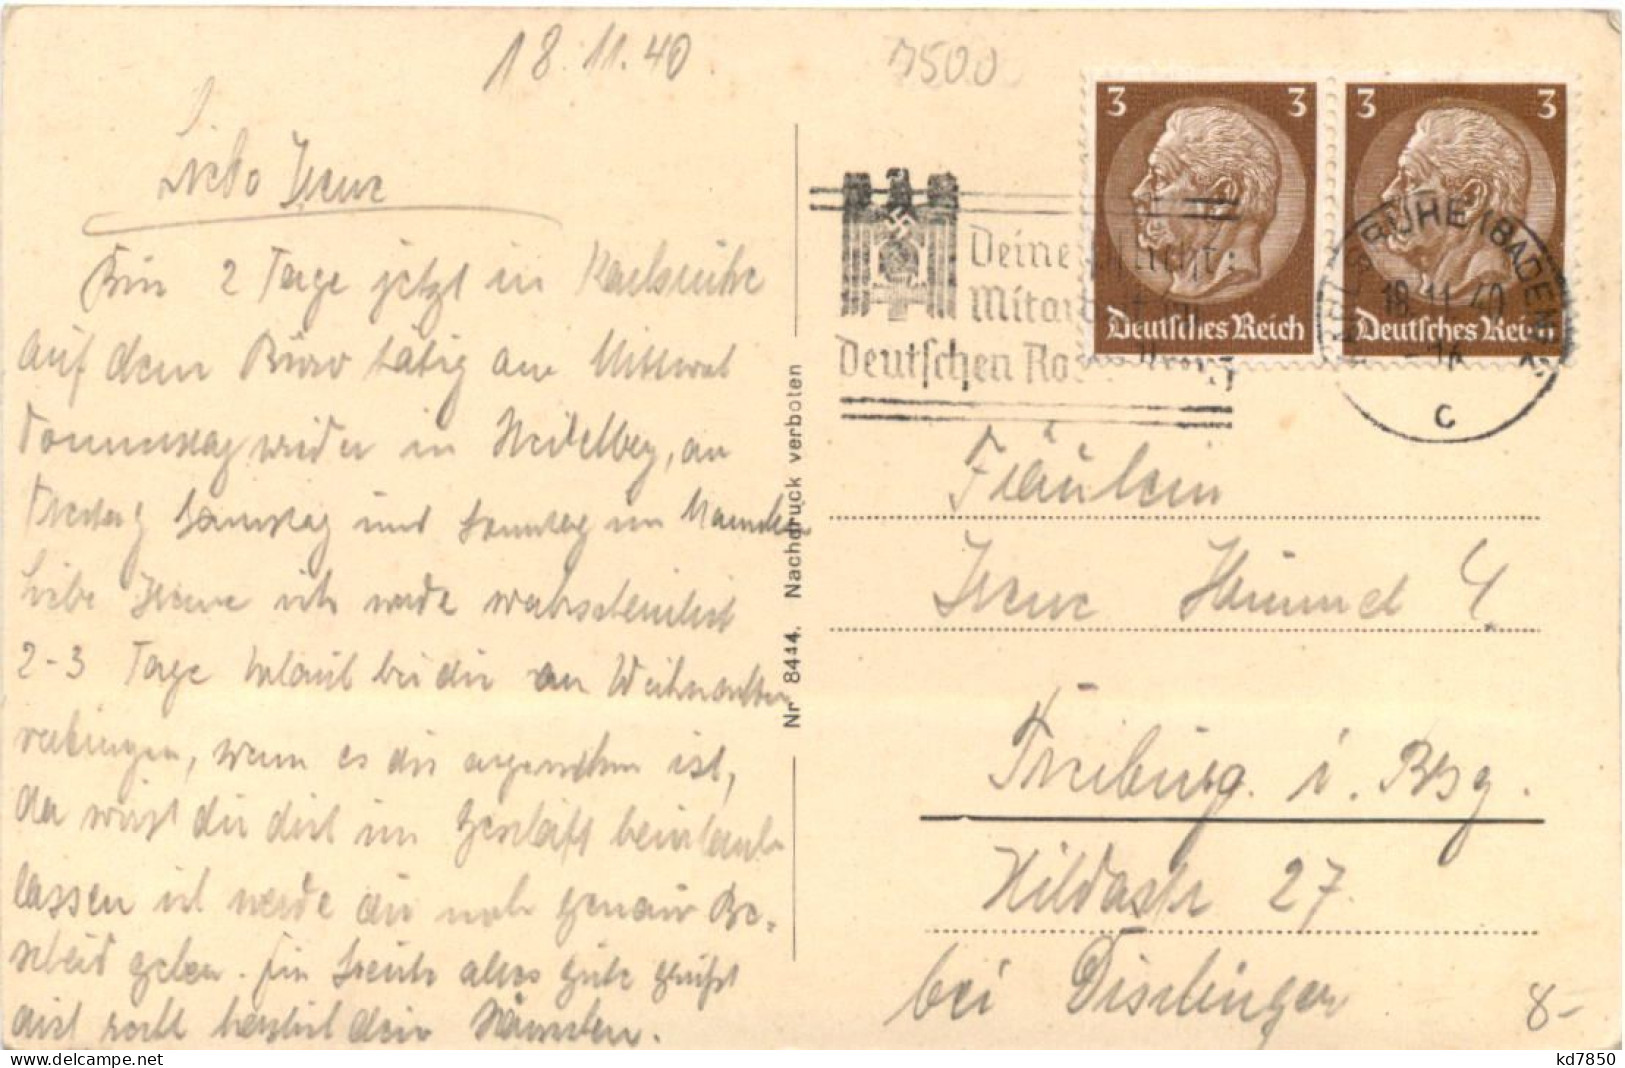 18.11.40
7500
Liebe Irene
Bin 2 Tage jetzt in Karlsruhe
auf dem Büro tätig am Mittwoch
Donnerstag wieder in Heidelberg, am
Freitag Samstag und Sonntag in
Liebe Irene ich werde wahrscheinlich
2-3 Tage Urlaub bei dir an Weihnachten
verbringen, wenn es dir angenehm ist,
da wirst du dich im Geschäft beurlauben
lassen ich werde dir noch genau Be-
scheid geben. Für heute alles Gute grüßt
dich recht herzlich dein
Nr 8444. Nachdruck verboten
3 3
Deutsches Reich
3 3
Deutsches Reich
Deine Pflicht:
Mitarbeit im
Deutschen Roten Kreuz
KARLSRUHE (BADEN) 2
18.11.40
C
Fräulein
Irene
Freiburg i. Bsg.
Hildastr 27.
bei
8-
kd7850
delcampe.net